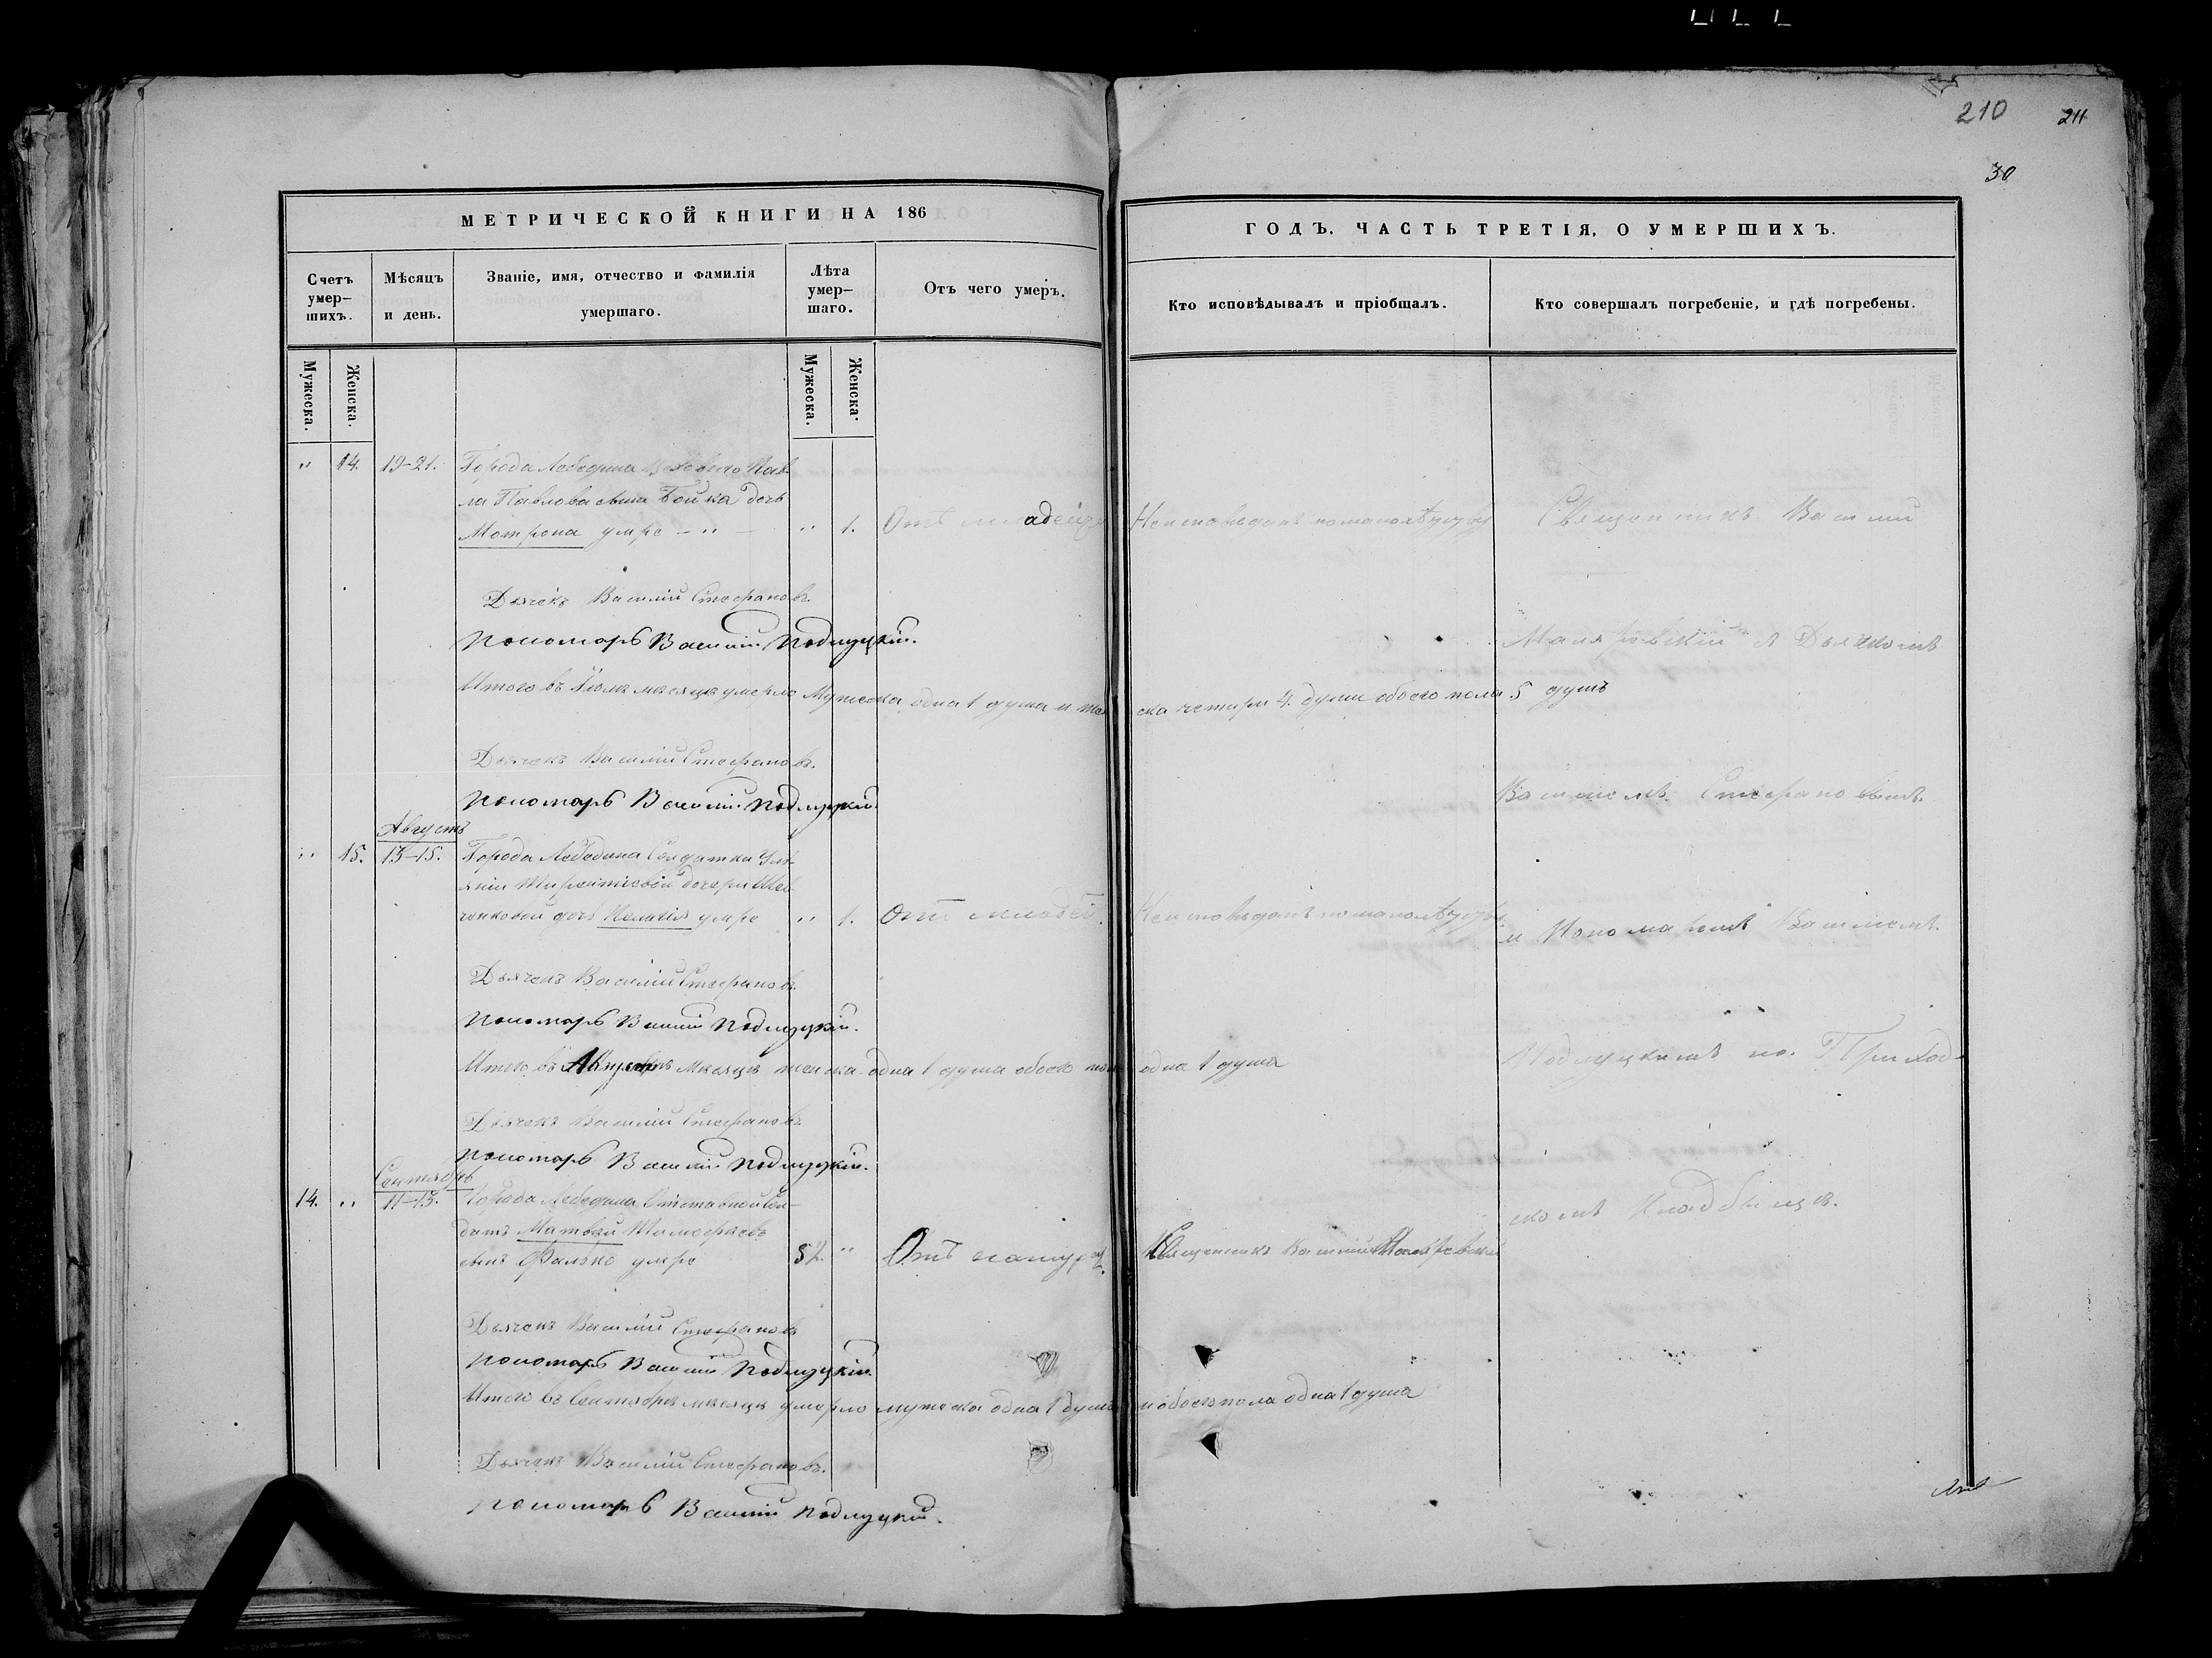 210 211
30
МЕТРИЧЕСКОЙ КНИГИ НА 186
ГОДЪ, ЧАСТЬ ТРЕТІЯ, О УМЕРШИХЪ.
Счетъ умер-шихъ.
Мѣсяцъ и день.
Званіе, имя, отчество и фамилія умершаго.
Лѣта умер-шаго.
Отъ чего умеръ.
Кто исповѣдывалъ и пріобщалъ.
Кто совершалъ погребеніе, и гдѣ погребены.
Мужеска. Женска. Мужеска. Женска.
" 14. 19-21. Города Лебедина Пав-
ла Павлова сына Бойка дочь
Мотрона умре - " - " 1. Отъ младенч
Священникъ Василій
Дьячекъ Василій Стефановъ.
Пономарь Василій Подлуцкій.
Маляревскій съ Дьячкомъ
Итого въ Іюлѣ мѣсяцѣ умерло Мужеска одна 1 душа и жен ска четыри 4. души обоего пола 5 душъ
Дьячекъ Василій Стефановъ.
Василіемъ Стефановымъ.
Пономарь Василій Подлуцкій.
Августъ
" 15. 13-15. Города Лебедина Солдатки Улі-
яніи дочери Шев-
ченковой дочь Пелагія умре " 1. Отъ младен.
и Пономаремъ Василіемъ
Дьячекъ Василій Стефановъ.
Пономарь Василій Подлуцкій.
Подлуцкимъ на Приход-
Итого въ Августѣ мѣсяцѣ женска одна 1 душа обоего пола одна 1 душа
Дьячекъ Василій Стефановъ
Пономарь Василій Подлуцкій.
Сентябрь
14. " 11-13. Города Лебедина Отставной Сол-
датъ Матвей Тимофеевъ
сынъ Фалько умре 52. " Отъ натур. Священникъ Василій Маляревскій
скомъ Кладбищѣ.
Дьячекъ Василій Стефановъ
Пономарь Василій Подлуцкій.
Итого въ Сентябрѣ мѣсяцѣ умерло мужеска одна 1 душа и обоего пола одна 1 душа
Дьячекъ Василій Стефановъ.
Пономарь Василій Подлуцкій.